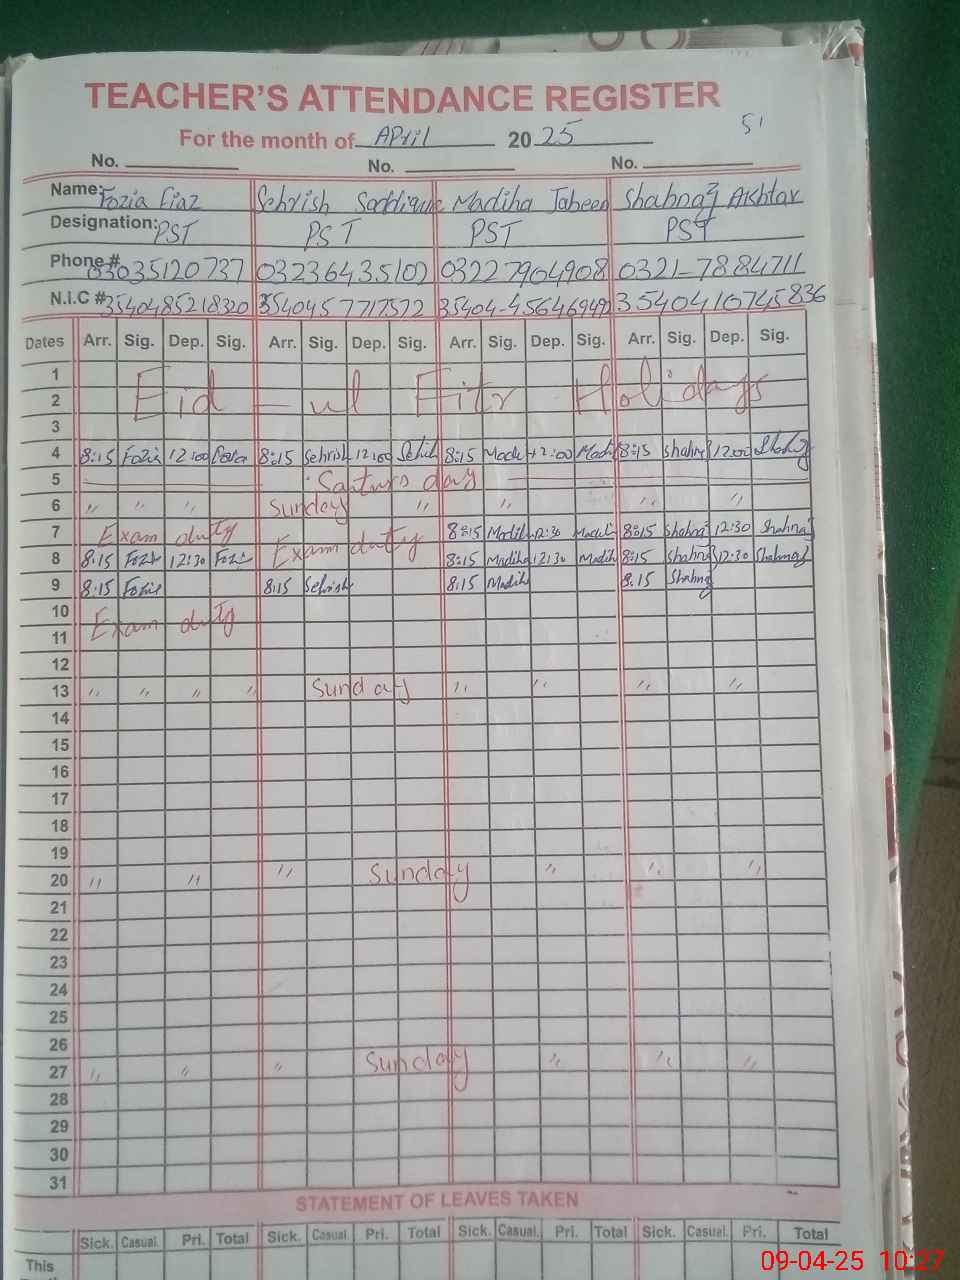 TEACHER'S ATTENDANCE REGISTER
For the month of April 2025 51
No. No. No.
Name: Fozia Fiaz Sehrish Saddique Madiha Jabeen Shahnaz Akhtar
Designation: PST PST PST PST
Phone # 03035120737 03236435102 03227904908 0321-7884711
N.I.C # 3540485218320 3540457717572 35404-4564694 3540410745836
Dates Arr. Sig. Dep. Sig. Arr. Sig. Dep. Sig. Arr. Sig. Dep. Sig. Arr. Sig. Dep. Sig.
1
2 Eid-ul Fitr Holidays
3
4 8:15 Fozia 12:00 Fozia 8:15 Sehrish 12:00 Sehih 8:15 Madi 12:00 Madi 8:15 Shahnz 12:00 Shahnz
5 Saturs day
6 " " " Sunday " " " "
7 Exam duty Exam duty 8:15 Madih 12:30 Madih 8:15 Shahnaz 12:30 Shahnaz
8 8:15 Fozi 12:30 Fozi 8:15 Madiha 12:30 Madih 8:15 Shahnaz 12:30 Shahnaz
9 8:15 Fozie 8:15 Sehrish 8:15 Madih 8.15 Shahnz
10
11 Exam duty
12
13 " " " " Sunday " " " "
14
15
16
17
18
19
20 " " " Sunday " " "
21
22
23
24
25
26
27 " " " Sunday " " "
28
29
30
31
STATEMENT OF LEAVES TAKEN
Sick. Casual. Pri. Total Sick. Casual. Pri. Total Sick. Casual. Pri. Total Sick. Casual. Pri. Total
This
09-04-25 10:27